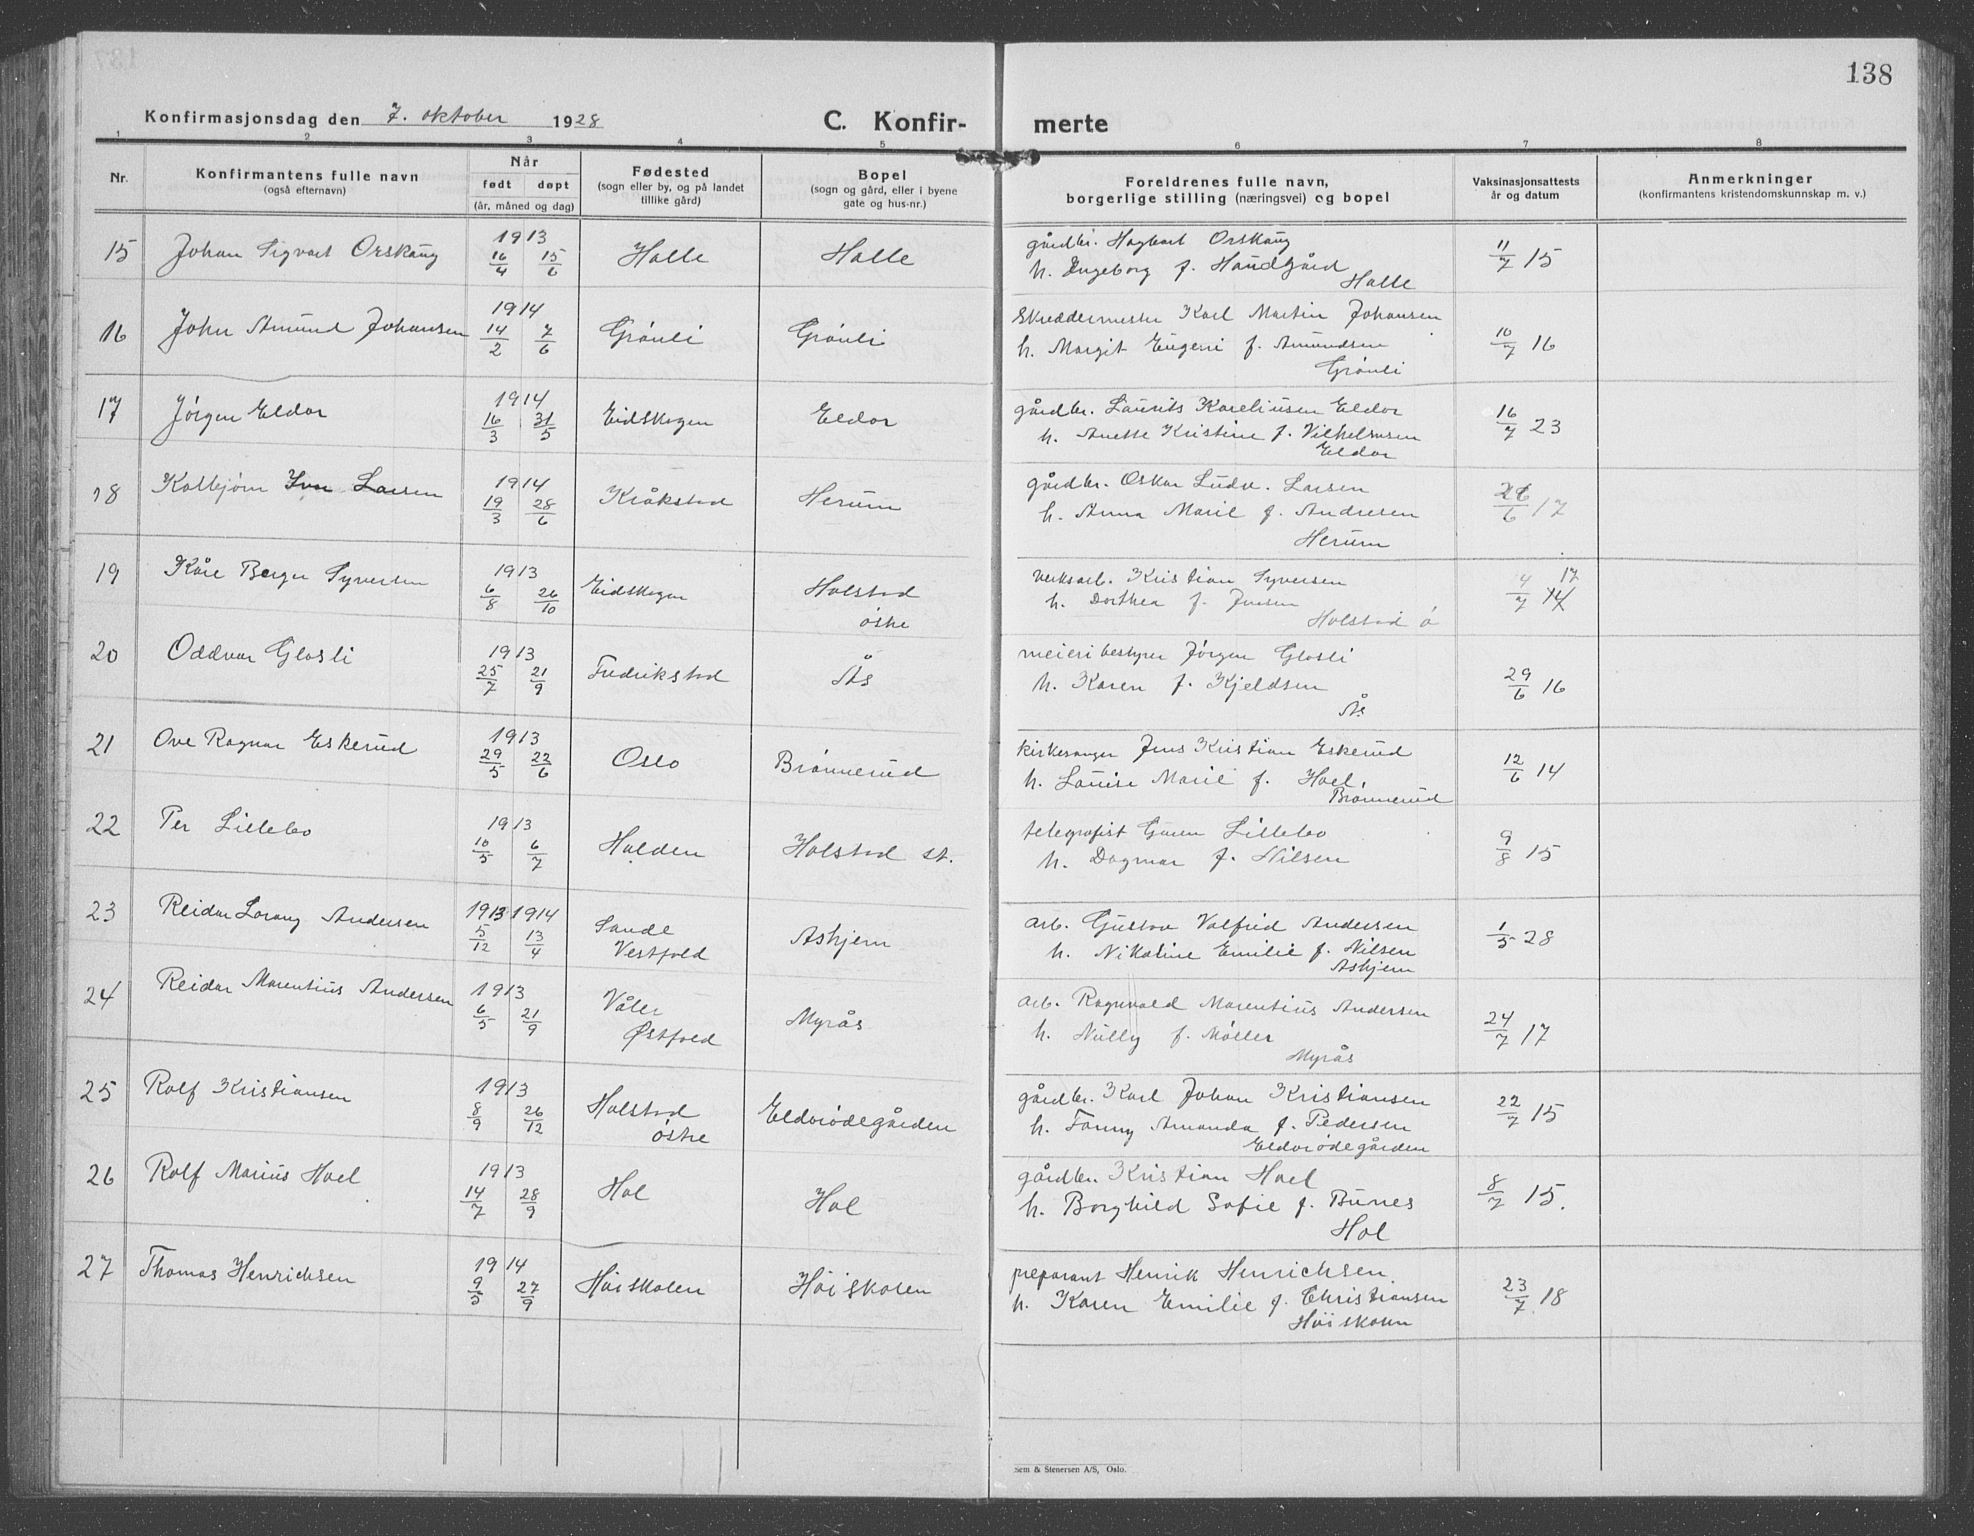 138
Konfirmasjonsdag den 7. oktober 1928
C. Konfir-
merte
1 2 3 4 5 6 7 8
Nr.
Konfirmantens fulle navn
(også efternavn)
Når
født døpt
(år, måned og dag)
Fødested
(sogn eller by, og på landet
tillike gård)
Bopel
(sogn og gård, eller i byene
gate og hus-nr.)
Foreldrenes fulle navn,
borgerlige stilling (næringsvei) og bopel
Vaksinasjonsattests
år og datum
Anmerkninger
(konfirmantens kristendomskunnskap m. v.)
15 Johan Sigvart Orskaug 1913 16/4 15/6 Holle Holle
gårdbr. Hagbart Orskaug
h. Ingeborg f. Haudgård
Holle
11/7 15
16 John Amund Johansen 1914 14/2 7/6 Grønli Grønli
Skreddermester Karl Martin Johansen
h. Margit Eugeni f. Amundsen
Grønli
10/7 16
17 Jørgen Eldor 1914 16/3 31/5 Eidskogen Eldor
gårdbr. Laurits Kareliusen Eldor
h. Anette Kristine f. Vilhelmsen
Eldor
16/7 23
18 Kolbjørn Ivar Larsen 1914 19/3 28/6 Kråkstad Herum
gårdbr. Oskar Ludv. Larsen
h. Anna Marie f. Andresen
Herum
26/6 17
19 Kåre Berger Syversen 1913 6/8 26/10 Eidskogen Holstad
østre
verksarb. Kristian Syversen
h. Dorthea f. Jensen
Holstad ø
4/7 14 17
20 Oddvar Glosli 1913 25/7 21/9 Fredrikstad Ås
meieribestyrer Jørgen Glosli
h. Karen f. Kjeldsen
Ås
29/6 16
21 Ove Ragnar Eskerud 1913 29/5 22/6 Oslo Brønnerud
kirkesanger Jens Kristian Eskerud
h. Louise Marie f. Hoel.
Brønnerud
12/6 14
22 Per Lillebo 1913 10/5 6/7 Halden Holstad st.
telegrafist Lillebo
h. Dagmar f. Nilsen
9/8 15
23 Reidar Lorang Andersen 1913 1914 5/12 13/4 Sande
Vestfold
Askjem
arb. Gustav Valfrid Andersen
h. Nikoline Emilie f. Nilsen
Askjem
1/5 28
24 Reidar Marentius Andersen 1913 6/5 21/9 Våler
Østfold
Myrås
arb. Ragnvald Marentius Andersen
h. Nully f. Møller
Myrås
24/7 17
25 Rolf Kristiansen 1913 8/9 26/12 Holstad
østre
Eldorødegården
gårdbr. Karl Johan Kristiansen
h. Fanny Amanda f. Pedersen
Eldorødegården
22/7 15
26 Rolf Marius Hoel 1913 14/7 28/9 Hol Hol
gårdbr. Kristian Hoel
h. Borghild Sofie f. Bunes
Hol
8/7 15.
27 Thomas Henrichsen 1914 9/5 27/9 Høiskolen Høiskolen
preparant Henrik Henrichsen.
h. Karen Emilie f. Christiansen
Høiskolen
23/7 18
Sem & Stenersen A/S, Oslo.